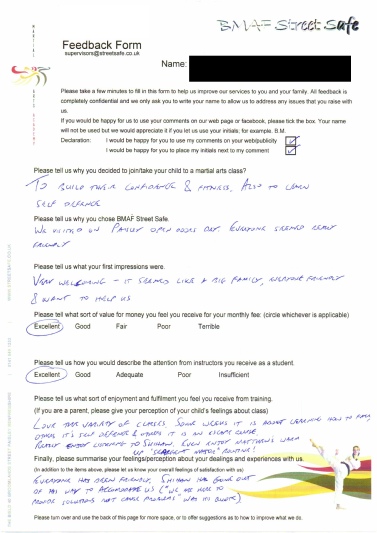 BMAF Street Safe
Feedback Form
supervisors@streetsafe.co.uk
Name:
Please take a few minutes to fill in this form to help us improve our services to you and your family. All feedback is
completely confidential and we only ask you to write your name to allow us to address any issues that you raise with
us.
If you would be happy for us to use your comments on our web page or facebook, please tick the box. Your name
will not be used but we would appreciate it if you let us use your initials, for example. B.M.
Declaration: I would be happy for you to use my comments on your web/publicity
I would be happy for you to place my initials next to my comment
Please tell us why you decided to join/take your child to a martial arts class?
To build their confidence & fitness. Also to learn
self defence
Please tell us why you chose BMAF Street Safe.
We visited on family open doors day. Everyone seemed really
friendly
Please tell us what your first impressions were.
Very welcoming - it seemed like a big family, everyone friendly
& want to help us
Please tell what sort of value for money you feel you receive for your monthly fee: (circle whichever is applicable)
Excellent Good Fair Poor Terrible
Please tell us how you would describe the attention from instructors you receive as a student.
Excellent Good Adequate Poor Insufficient
Please tell us what sort of enjoyment and fulfilment you feel you receive from training.
(If you are a parent, please give your perception of your child's feelings about class)
Love the variety of classes. Some weeks it is about learning how to
others it's self defence & others it is an escape class.
Really enjoy listening to Shihan. Even enjoy Matthew's warm
up routine!
Finally, please summarise your feelings/perception about your dealings and experiences with us.
(In addition to the items above, please let us know your overall feelings of satisfaction with us)
Everyone has been friendly. Shihan has gone out
of his way to accommodate us ("We are here to
provide solutions not cause problems" was his quote)
Please turn over and use the back of this page for more space, or to offer suggestions as to how to improve what we do.